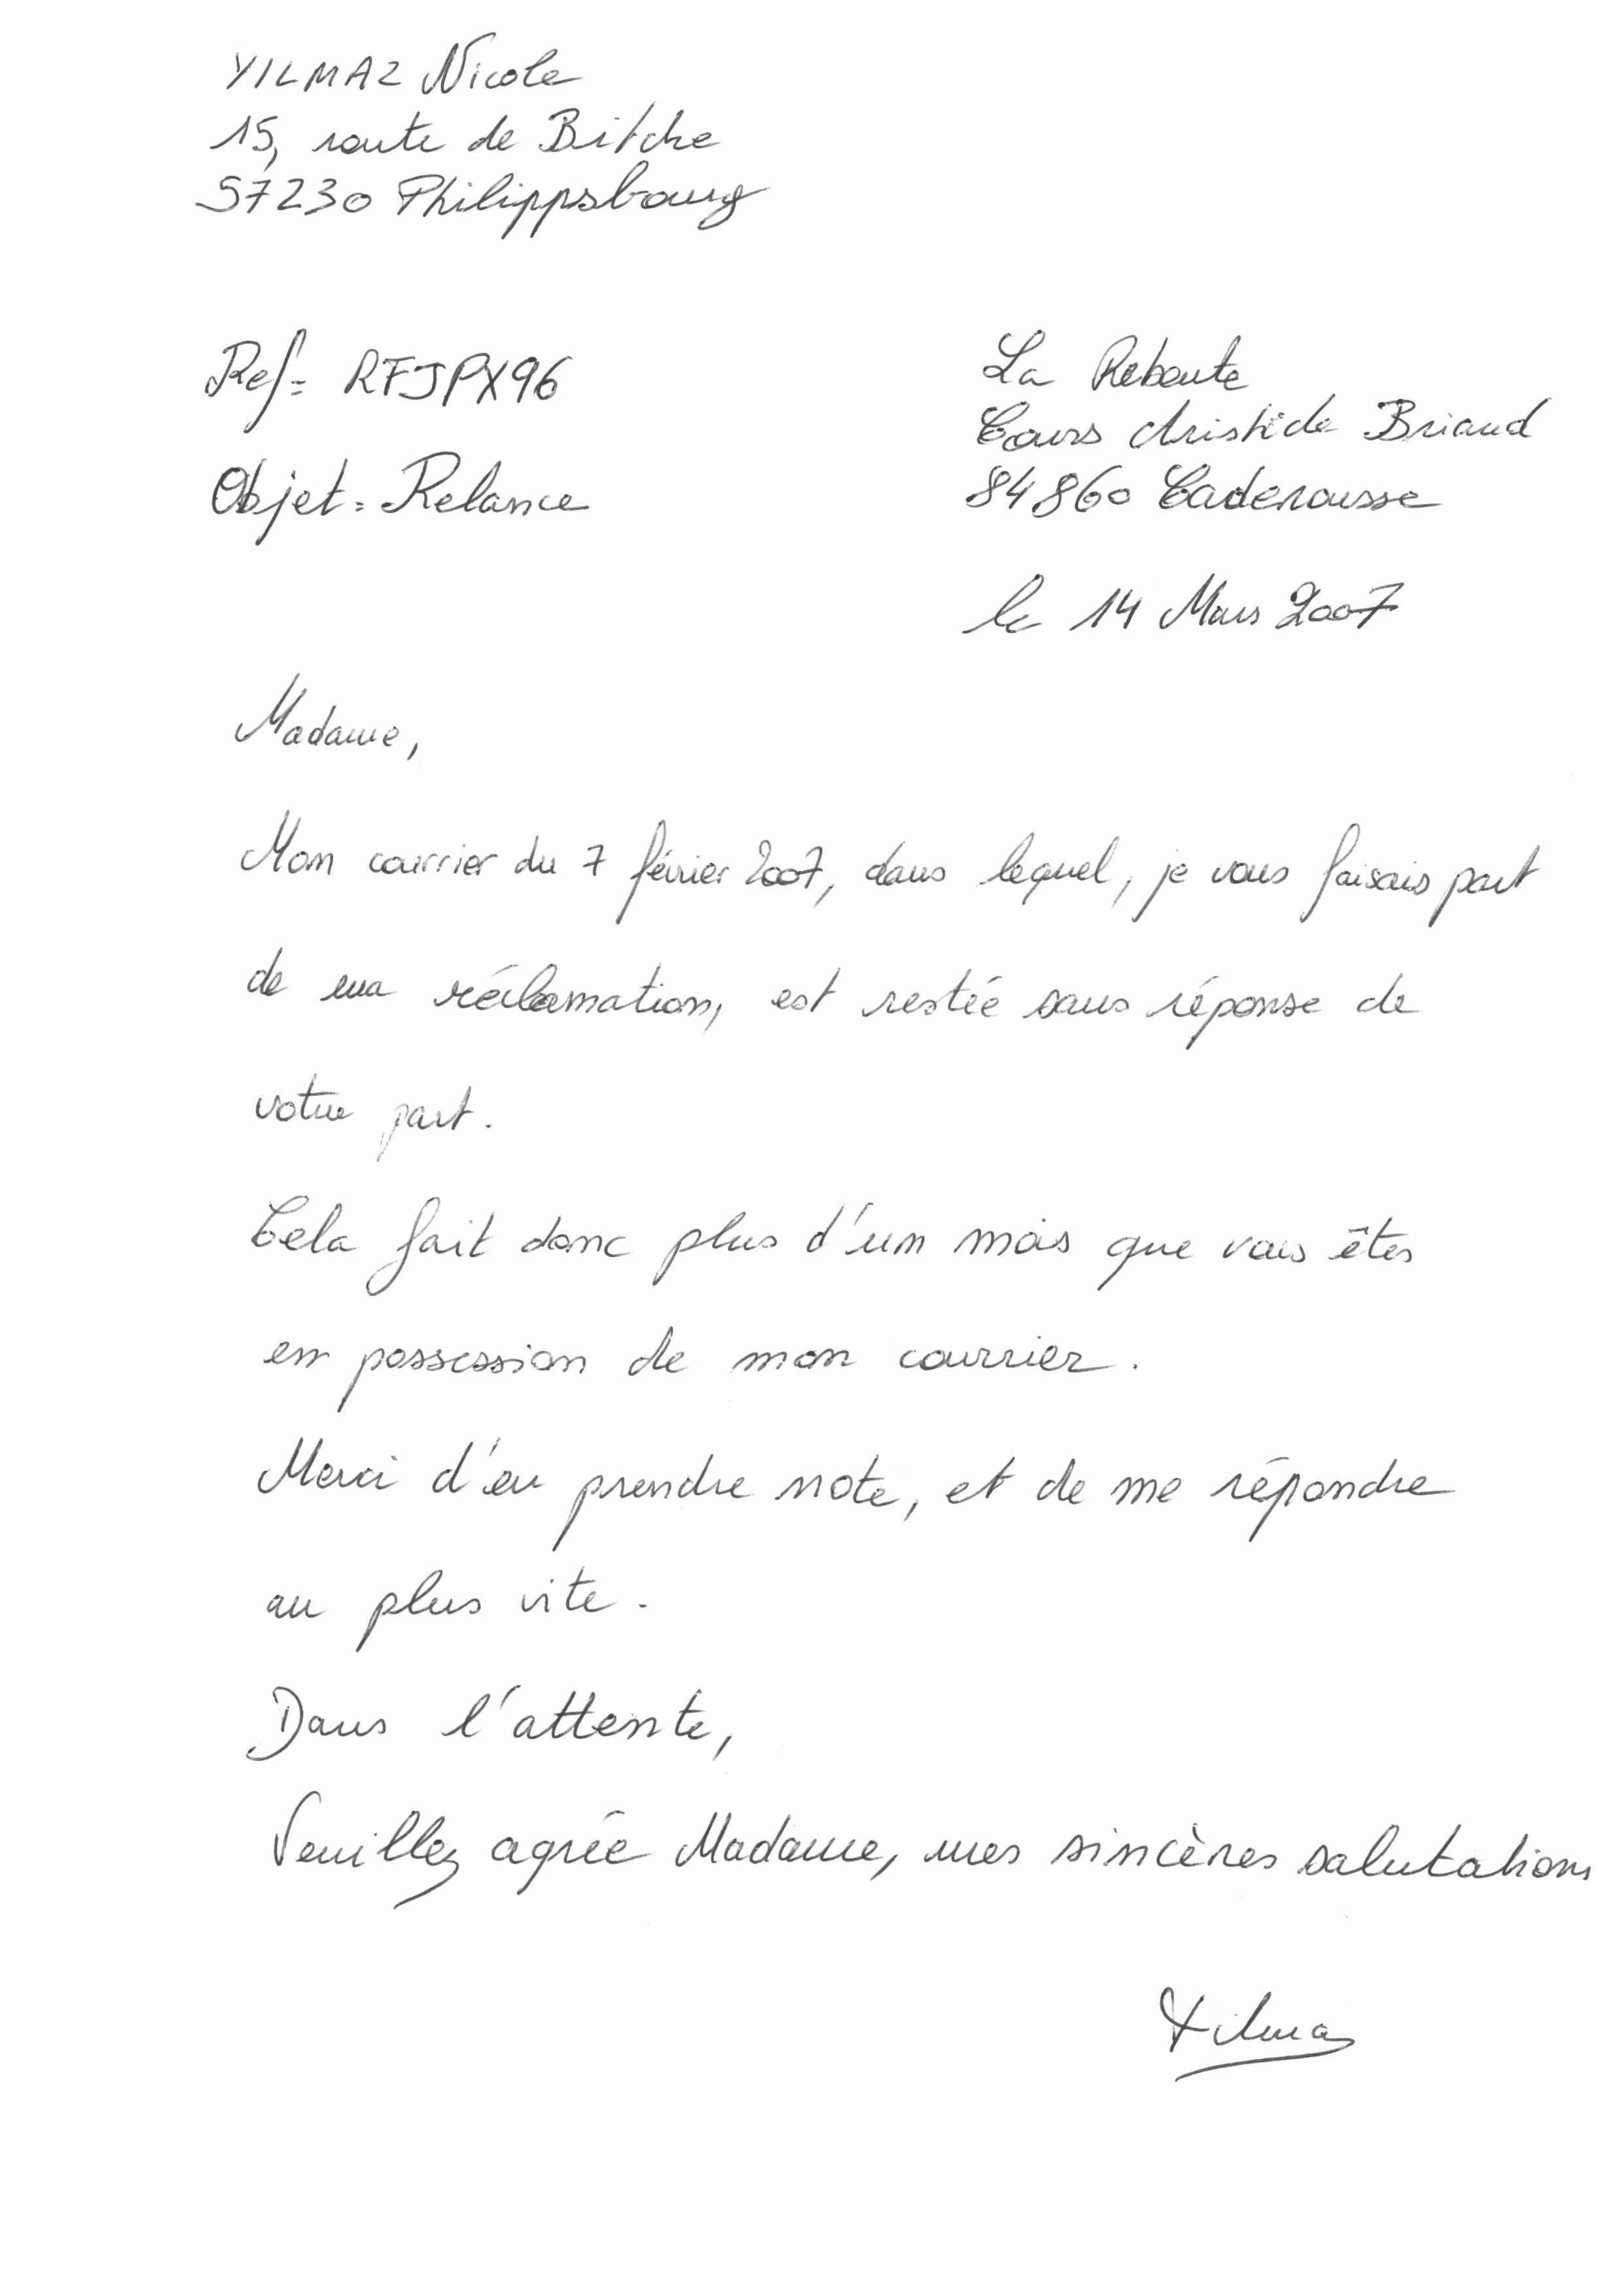 YILMAZ Nicole
15, route de Bitche
57230 Philippsbourg
Ref: RFJPX96
La Reboute
Objet: Relance
Cours Aristide Briand
84860 Caderousse
le 14 Mars 2007
Madame,
Mon courrier du 7 février 2007, dans lequel, je vous faisais part
de ma réclamation, est restée sans réponse de
votre part.
Cela fait donc plus d'un mois que vous êtes
en possession de mon courrier.
Merci d'en prendre note, et de me répondre
au plus vite.
Dans l'attente,
Veuillez agrée Madame, mes sincères salutations
Yilmaz